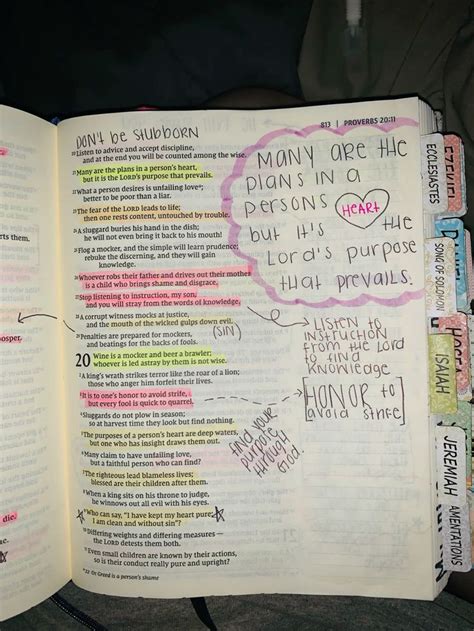 813 | PROVERBS 20:11
DON'T be STUBBORN
20 Listen to advice and accept discipline,
and at the end you will be counted among the wise.
21 Many are the plans in a person's heart,
but it is the LORD's purpose that prevails.
22 What a person desires is unfailing love*;
better to be poor than a liar.
23 The fear of the LORD leads to life;
then one rests content, untouched by trouble.
24 A sluggard buries his hand in the dish;
he will not even bring it back to his mouth!
25 Flog a mocker, and the simple will learn prudence;
rebuke the discerning, and they will gain
knowledge.
26 Whoever robs their father and drives out their mother
is a child who brings shame and disgrace.
27 Stop listening to instruction, my son,
and you will stray from the words of knowledge.
28 A corrupt witness mocks at justice,
and the mouth of the wicked gulps down evil.
(SIN)
29 Penalties are prepared for mockers,
and beatings for the backs of fools.
20 Wine is a mocker and beer a brawler;
whoever is led astray by them is not wise.
2 A king's wrath strikes terror like the roar of a lion;
those who anger him forfeit their lives.
3 It is to one's honor to avoid strife,
but every fool is quick to quarrel.
4 Sluggards do not plow in season;
so at harvest time they look but find nothing.
5 The purposes of a person's heart are deep waters,
but one who has insight draws them out.
6 Many claim to have unfailing love,
but a faithful person who can find?
7 The righteous lead blameless lives;
blessed are their children after them.
8 When a king sits on his throne to judge,
he winnows out all evil with his eyes.
9 Who can say, "I have kept my heart pure;
I am clean and without sin"?
10 Differing weights and differing measures —
the LORD detests them both.
11 Even small children are known by their actions,
so is their conduct really pure and upright?
*22 Or Greed is a person's shame
MANY are the
plans in a
persons HEART
but it's the
Lord's purpose
that prevails.
LISTEN to
INSTRUCTION
FROM the LORD
to FIND
KNOWLEDGE
HONOR to
avoid strife
find your
purpose
through
God.
rts them.
osper,
die.
ECCLESIASTES
SONG OF SOLOMON
ISAIAH
JEREMIAH
LAMENTATIONS
HOSEA